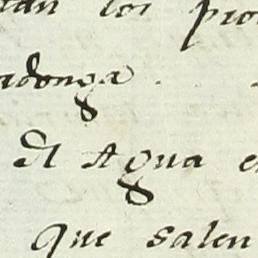 tan los pio
adonga
El Agua e
que salen